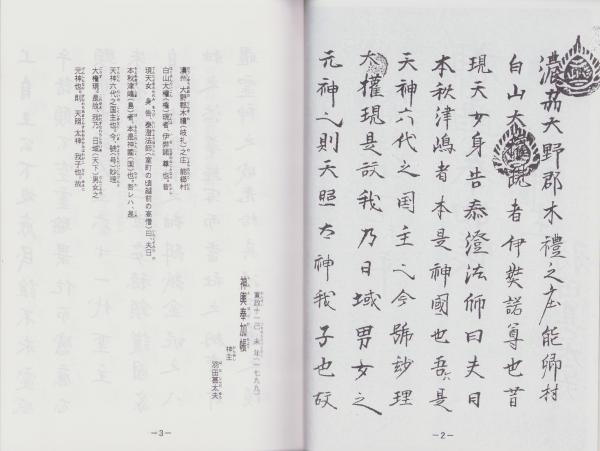 濃州大野郡木禮之庄能卿村
白山大現者伊弉諾尊也昔
現天女身告泰澄法師曰夫日
本秋津嶋者本是神國也吾ハ是
天神六代之国主也今號妙理
大權現是故我乃日域男女之
元神也則天照太神我子也故
—2—
寛政十一己未年(一七九九)
神輿奉加帳
神主 羽田甚太夫
濃州、大野郡木禮(岐礼)之庄、能郷村
白山大權(権)現者、伊弉諾尊也、昔
現天女身告、泰澄法師(室町の頃越前の高僧)曰、夫日
本秋津嶋(島)者、本是神國(国)也、吾レハ、是
天神六代之国主也、今、號(号)妙理
大権現、是故、我乃、日域(天下)男女之
元神也、則、天照、太神、我子也、故
—3—